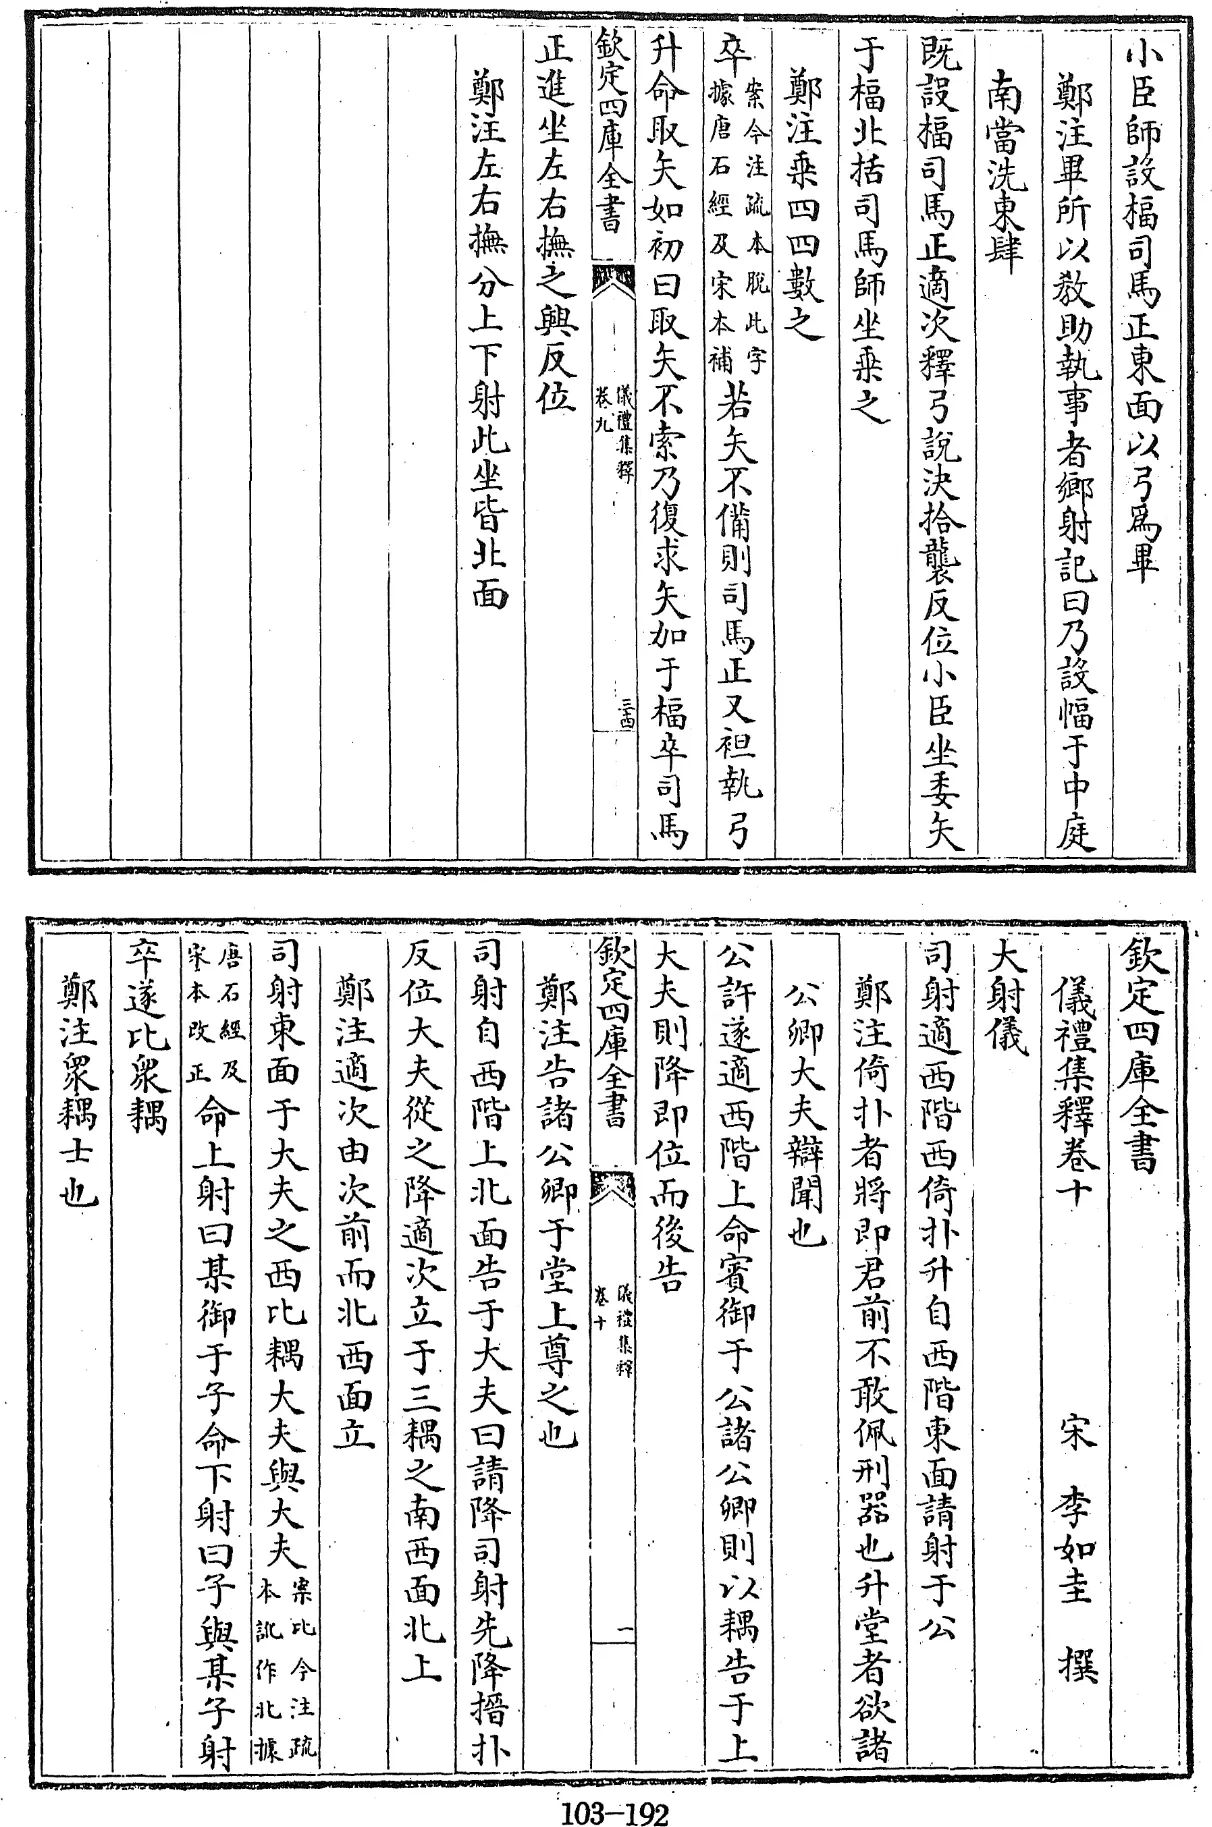 小臣師設楅司馬正東面以弓爲畢
鄭注畢所以教助執事者鄉射記曰乃設楅于中庭
南當洗東肆
既設楅司馬正適次釋弓說決拾襲反位小臣坐委矢
于楅北括司馬師坐乗之
鄭注乗四四數之
卒案今注疏本脫此字據唐石經及宋本補若矢不備則司馬正又袒執弓
升命取矢如初曰取矢不索乃復求矢加于楅卒司馬
欽定四庫全書 儀禮集釋卷九 三四
正進坐左右撫之興反位
鄭注左右撫分上下射此坐皆北面
欽定四庫全書
儀禮集釋卷十 宋 李如圭 撰
大射儀
司射適西階西倚扑升自西階東面請射于公
鄭注倚扑者將即君前不敢佩刑器也升堂者欲諸
公卿大夫辯聞也
公許遂適西階上命賓御于公諸公卿則以耦告于上
大夫則降即位而後告
欽定四庫全書 儀禮集釋卷十 一
鄭注告諸公卿于堂上尊之也
司射自西階上北面告于大夫曰請降司射先降搢扑
反位大夫從之降適次立于三耦之南西面北上
鄭注適次由次前而北西面立
司射東面于大夫之西比耦大夫與大夫案比今注疏本訛作北據
唐石經及宋本改正命上射曰某御于子命下射曰子與某子射
卒遂比衆耦
鄭注衆耦士也
103-192